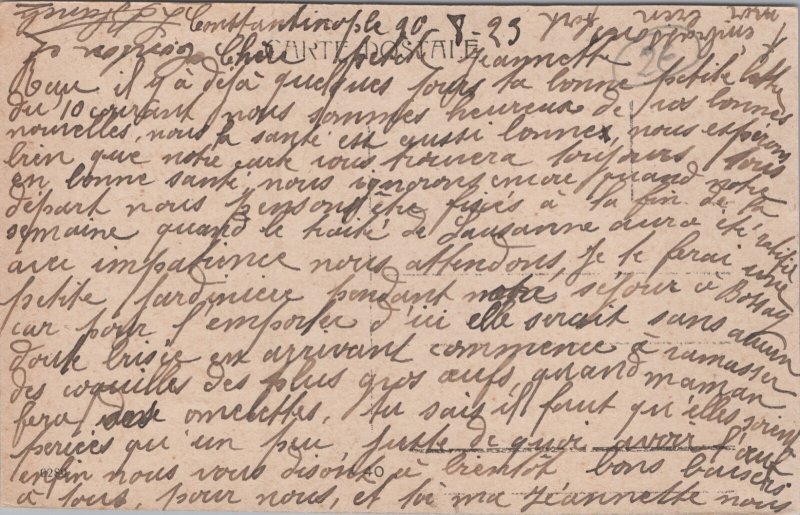 Constantinople 20 8-23
CARTE POSTALE
Chère petite Jeannette
Reçu il y à déjà quelques jours ta bonne petite lettre
du 10 courant nous sommes heureux de vos bonnes
nouvelles, nous la santé est aussi bonne, nous espérons
bien que notre carte vous trouvera toujours tous
en bonne santé, nous ignorons encore quand notre
départ nous pensons être fixés à la fin de la
semaine quand le traité de Lausanne aura été ratifié
avec impatience nous attendons, Je te ferai une
petite jardinière pendant notre séjour à
car pour l'emporter d'ici elle serait sans aucun
doute brisée en arrivant commence à ramasser
des coquilles des plus gros œufs, quand maman
fera des omelettes, tu sais il faut qu'elles soient
percées qu'un peu juste de quoi avoir l'œuf
enfin nous vous disons à bientôt bons baisers
à tous, pour nous, et toi ma Jeannette nous
26